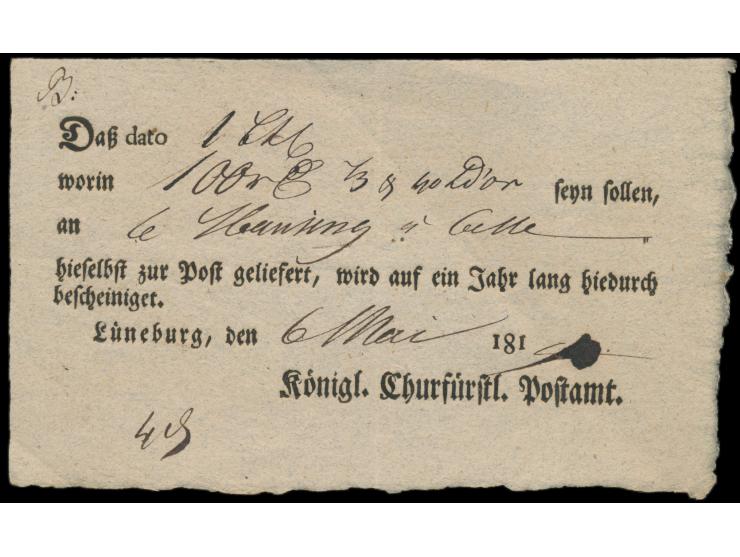 B:
Daß dato 1
worin 100 seyn sollen,
an Celle
hieselbst zur Post geliefert, wird auf ein Jahr lang hiedurch
bescheiniget.
Lüneburg, den 6 Mai 181
Königl. Churfürstl. Postamt.
4